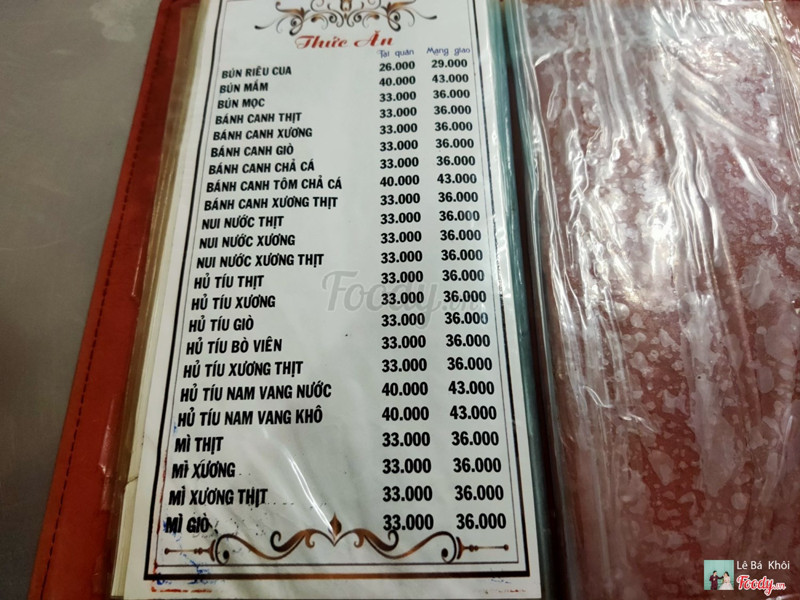 Thức Ăn
Tại quán Mang giao
BÚN RIÊU CUA 26.000 29.000
BÚN MẮM 40.000 43.000
BÚN MỌC 33.000 36.000
BÁNH CANH THỊT 33.000 36.000
BÁNH CANH XƯƠNG 33.000 36.000
BÁNH CANH GIÒ 33.000 36.000
BÁNH CANH CHẢ CÁ 33.000 36.000
BÁNH CANH TÔM CHẢ CÁ 40.000 43.000
BÁNH CANH XƯƠNG THỊT 33.000 36.000
NUI NƯỚC THỊT 33.000 36.000
NUI NƯỚC XƯƠNG 33.000 36.000
NUI NƯỚC XƯƠNG THỊT 33.000 36.000
HỦ TÍU THỊT 33.000 36.000
HỦ TÍU XƯƠNG 33.000 36.000
HỦ TÍU GIÒ 33.000 36.000
HỦ TÍU BÒ VIÊN 33.000 36.000
HỦ TÍU XƯƠNG THỊT 33.000 36.000
HỦ TÍU NAM VANG NƯỚC 40.000 43.000
HỦ TÍU NAM VANG KHÔ 40.000 43.000
MÌ THỊT 33.000 36.000
MÌ XƯƠNG 33.000 36.000
MÌ XƯƠNG THỊT 33.000 36.000
MÌ GIÒ 33.000 36.000
Foody.vn
Lê Bá Khôi
Foody.vn